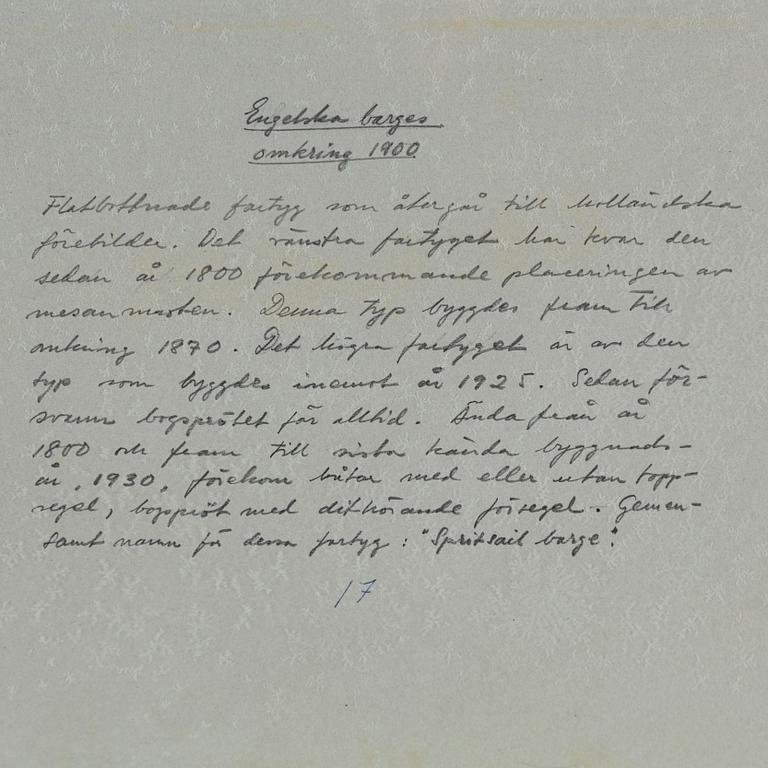 Engelska barges
omkring 1900
Flatbottnade fartyg som återgår till holländska
förebilder. Det vänstra fartyget har kvar den
sedan år 1800 förekommande placeringen av
mesanmasten. Denna typ byggdes fram till
omkring 1870. Det högra fartyget är av den
typ som byggdes inemot år 1925. Sedan för-
svann bogsprötet för alltid. Ända från år
1800 och fram till sista kända byggnads-
år, 1930, förekom båtar med eller utan topp-
segel, bogspröt med dithörande försegel. Gemen-
samt namn för dessa fartyg: "Spritsail barge".
17